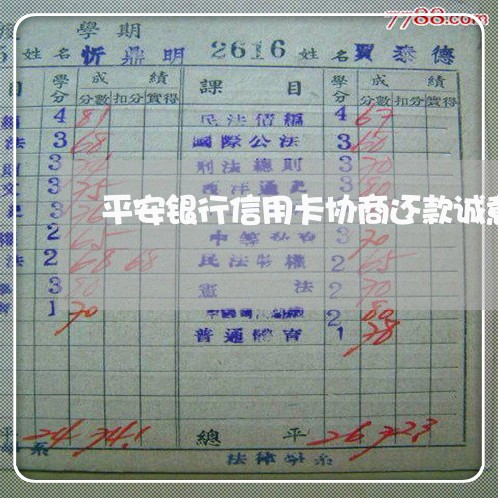 7788.com
學期
姓名 忻鼎明 2616 姓名 賈泰德
目 學分 成績 課目 學分 成績
分數 扣分 實得 分數 扣分 實得
4 81 民法債編 4 67
法 3 68 國際公法 3 60
3 刑法總則 3 70
文 3 75 西洋通史 3 80
平安银行信用卡协商还款诚意
權 2 65 3 70
法 2 68 68 民法物權 2 65
3 80 憲法 2 70
育 1 70 2 80
普通體育 1 78
平 24 74.1 總平 26 72.3
系 法律學系